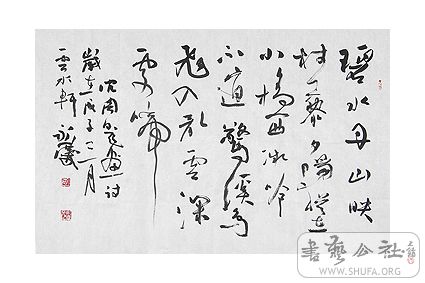 碧水丹山映
杖藜夕陽猶在
小橋西微吟
不道驚溪鳥
飛入亂雲深
處啼
沈周題畫詩
歲在戊子 月
雲水軒
書藝公社
WWW.SHUFA.ORG